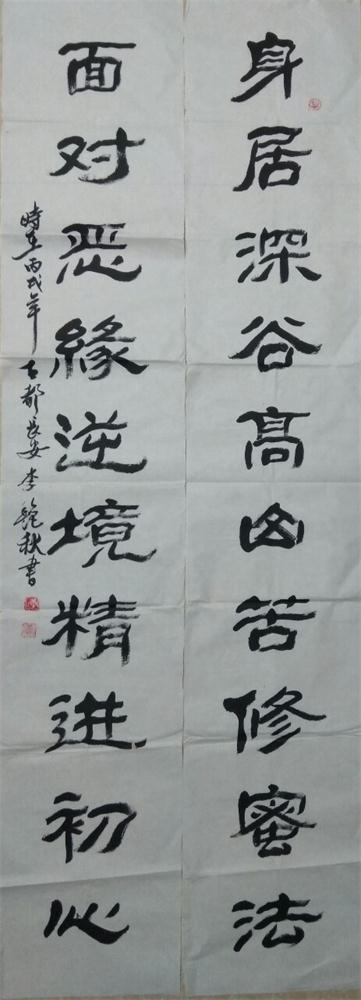 身居深谷高山苦修蜜法
面对恶緣逆境精进初心
時在丙戌年古都長安李艳秋書